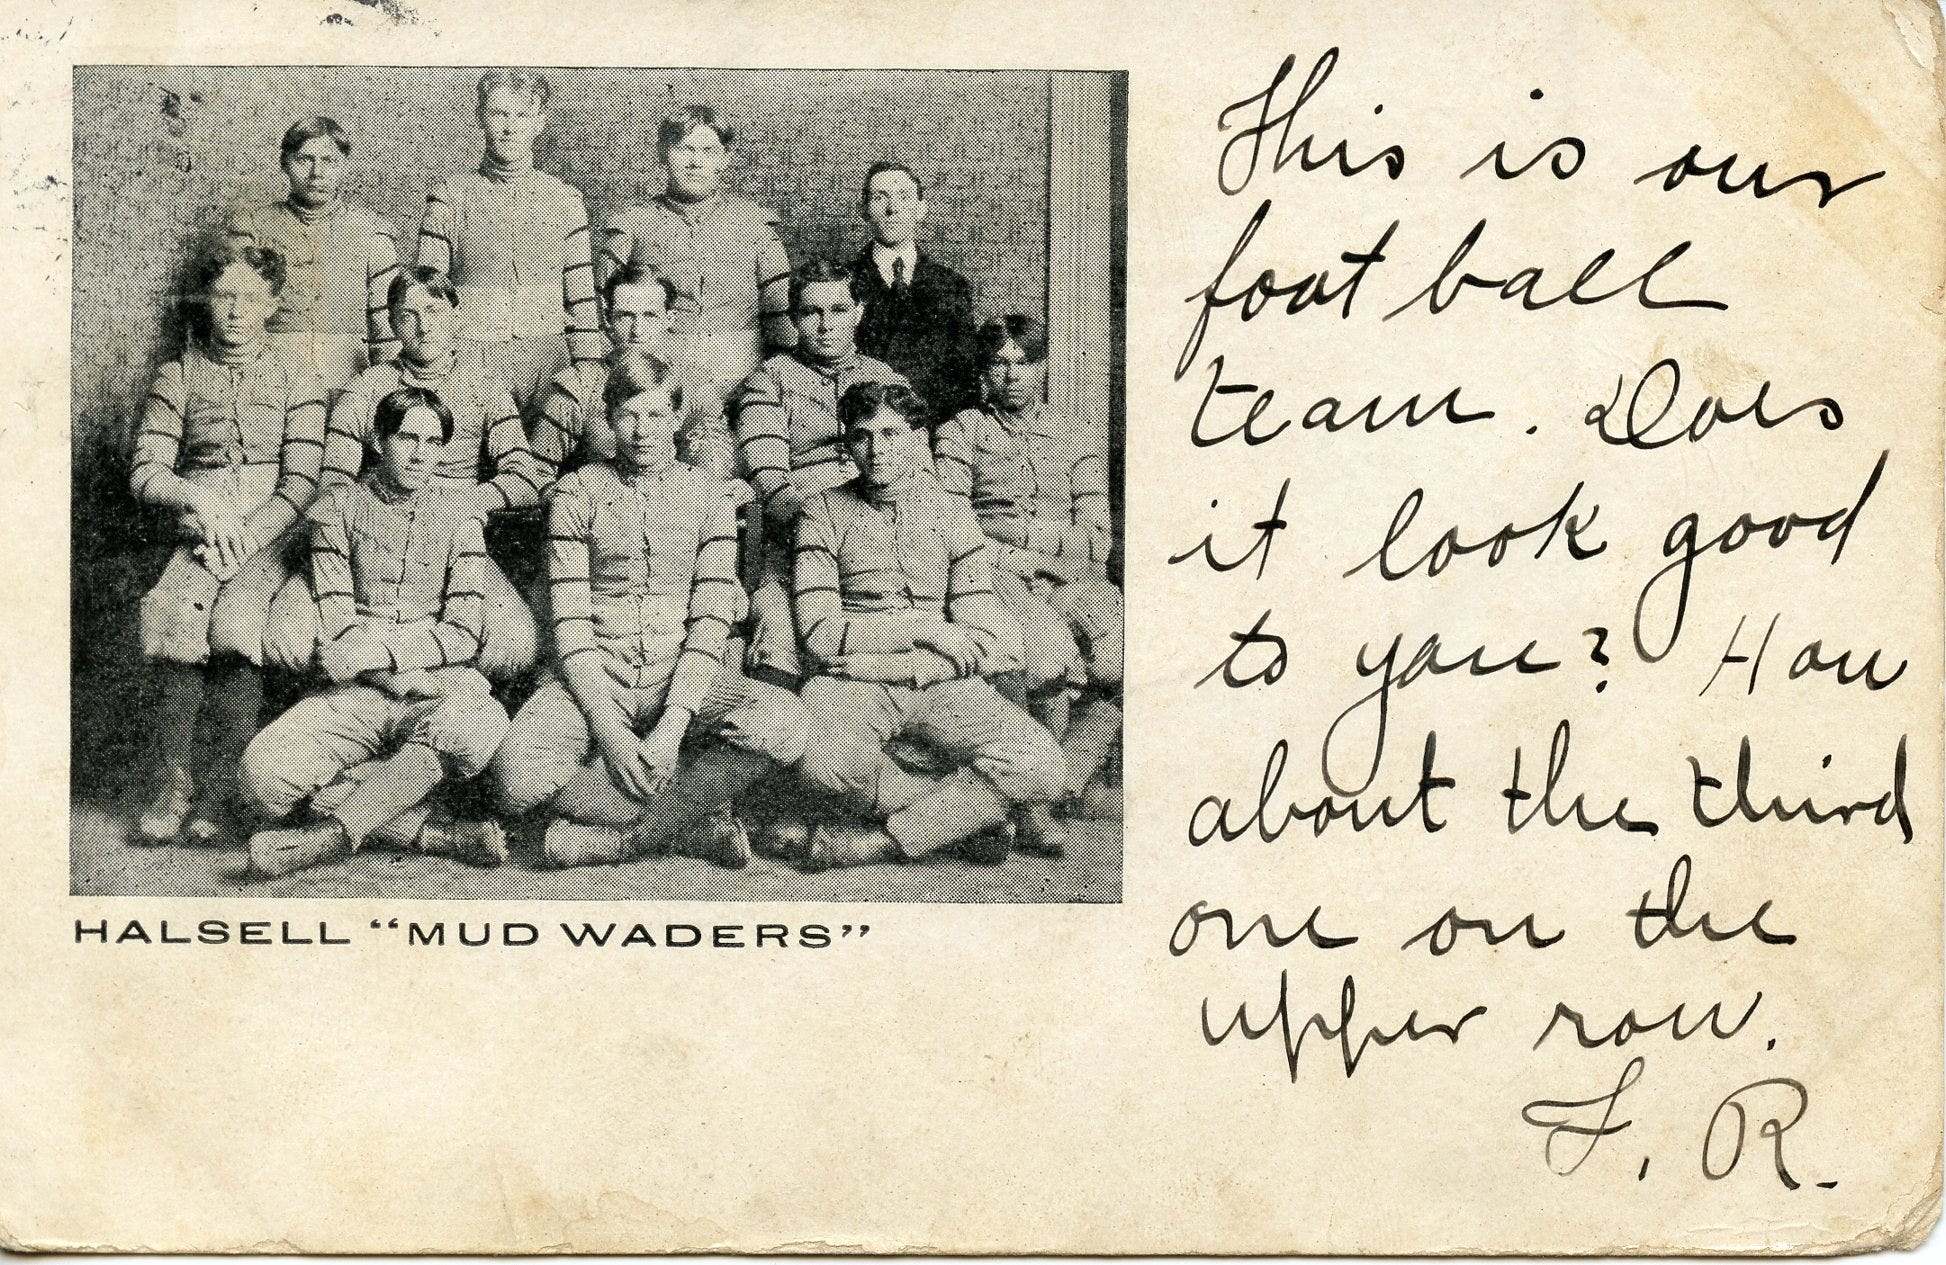 HALSELL "MUD WADERS"
This is our
foot ball
team. Does
it look good
to you? How
about the third
one on the
upper row.
F. R.